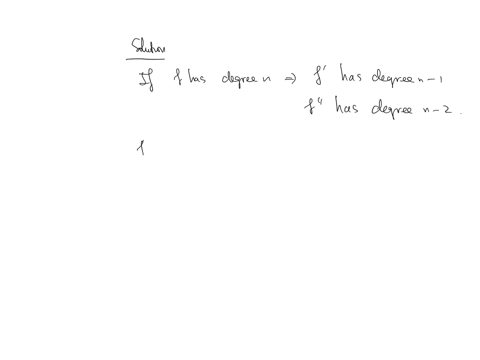 Solution
If f has degree n ⇒ f' has degree n-1
f'' has degree n-2.
f